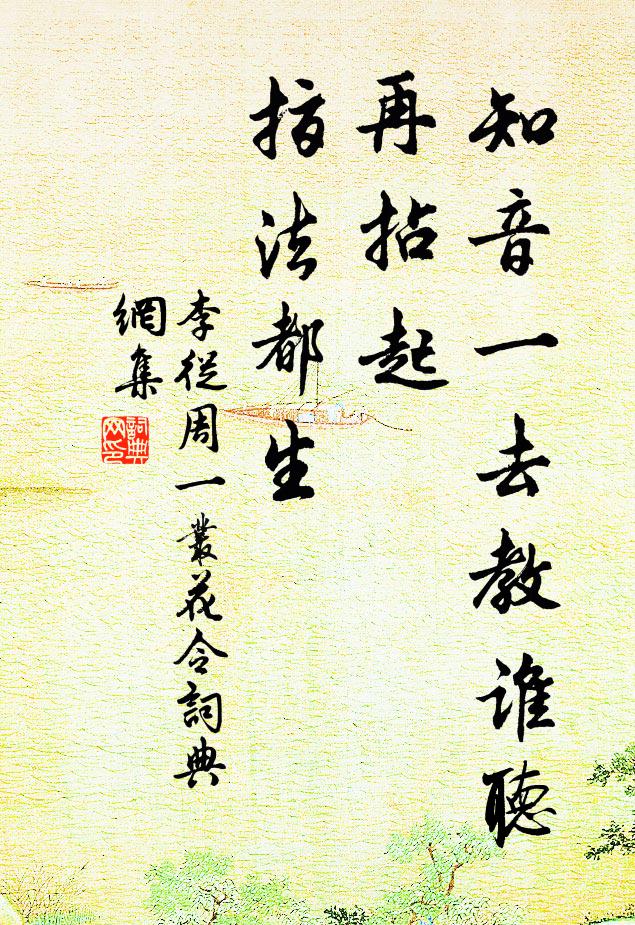 知音一去教谁聽
再拈起
指法都生
李從周一叢花令詞典
網集
詞典
网印